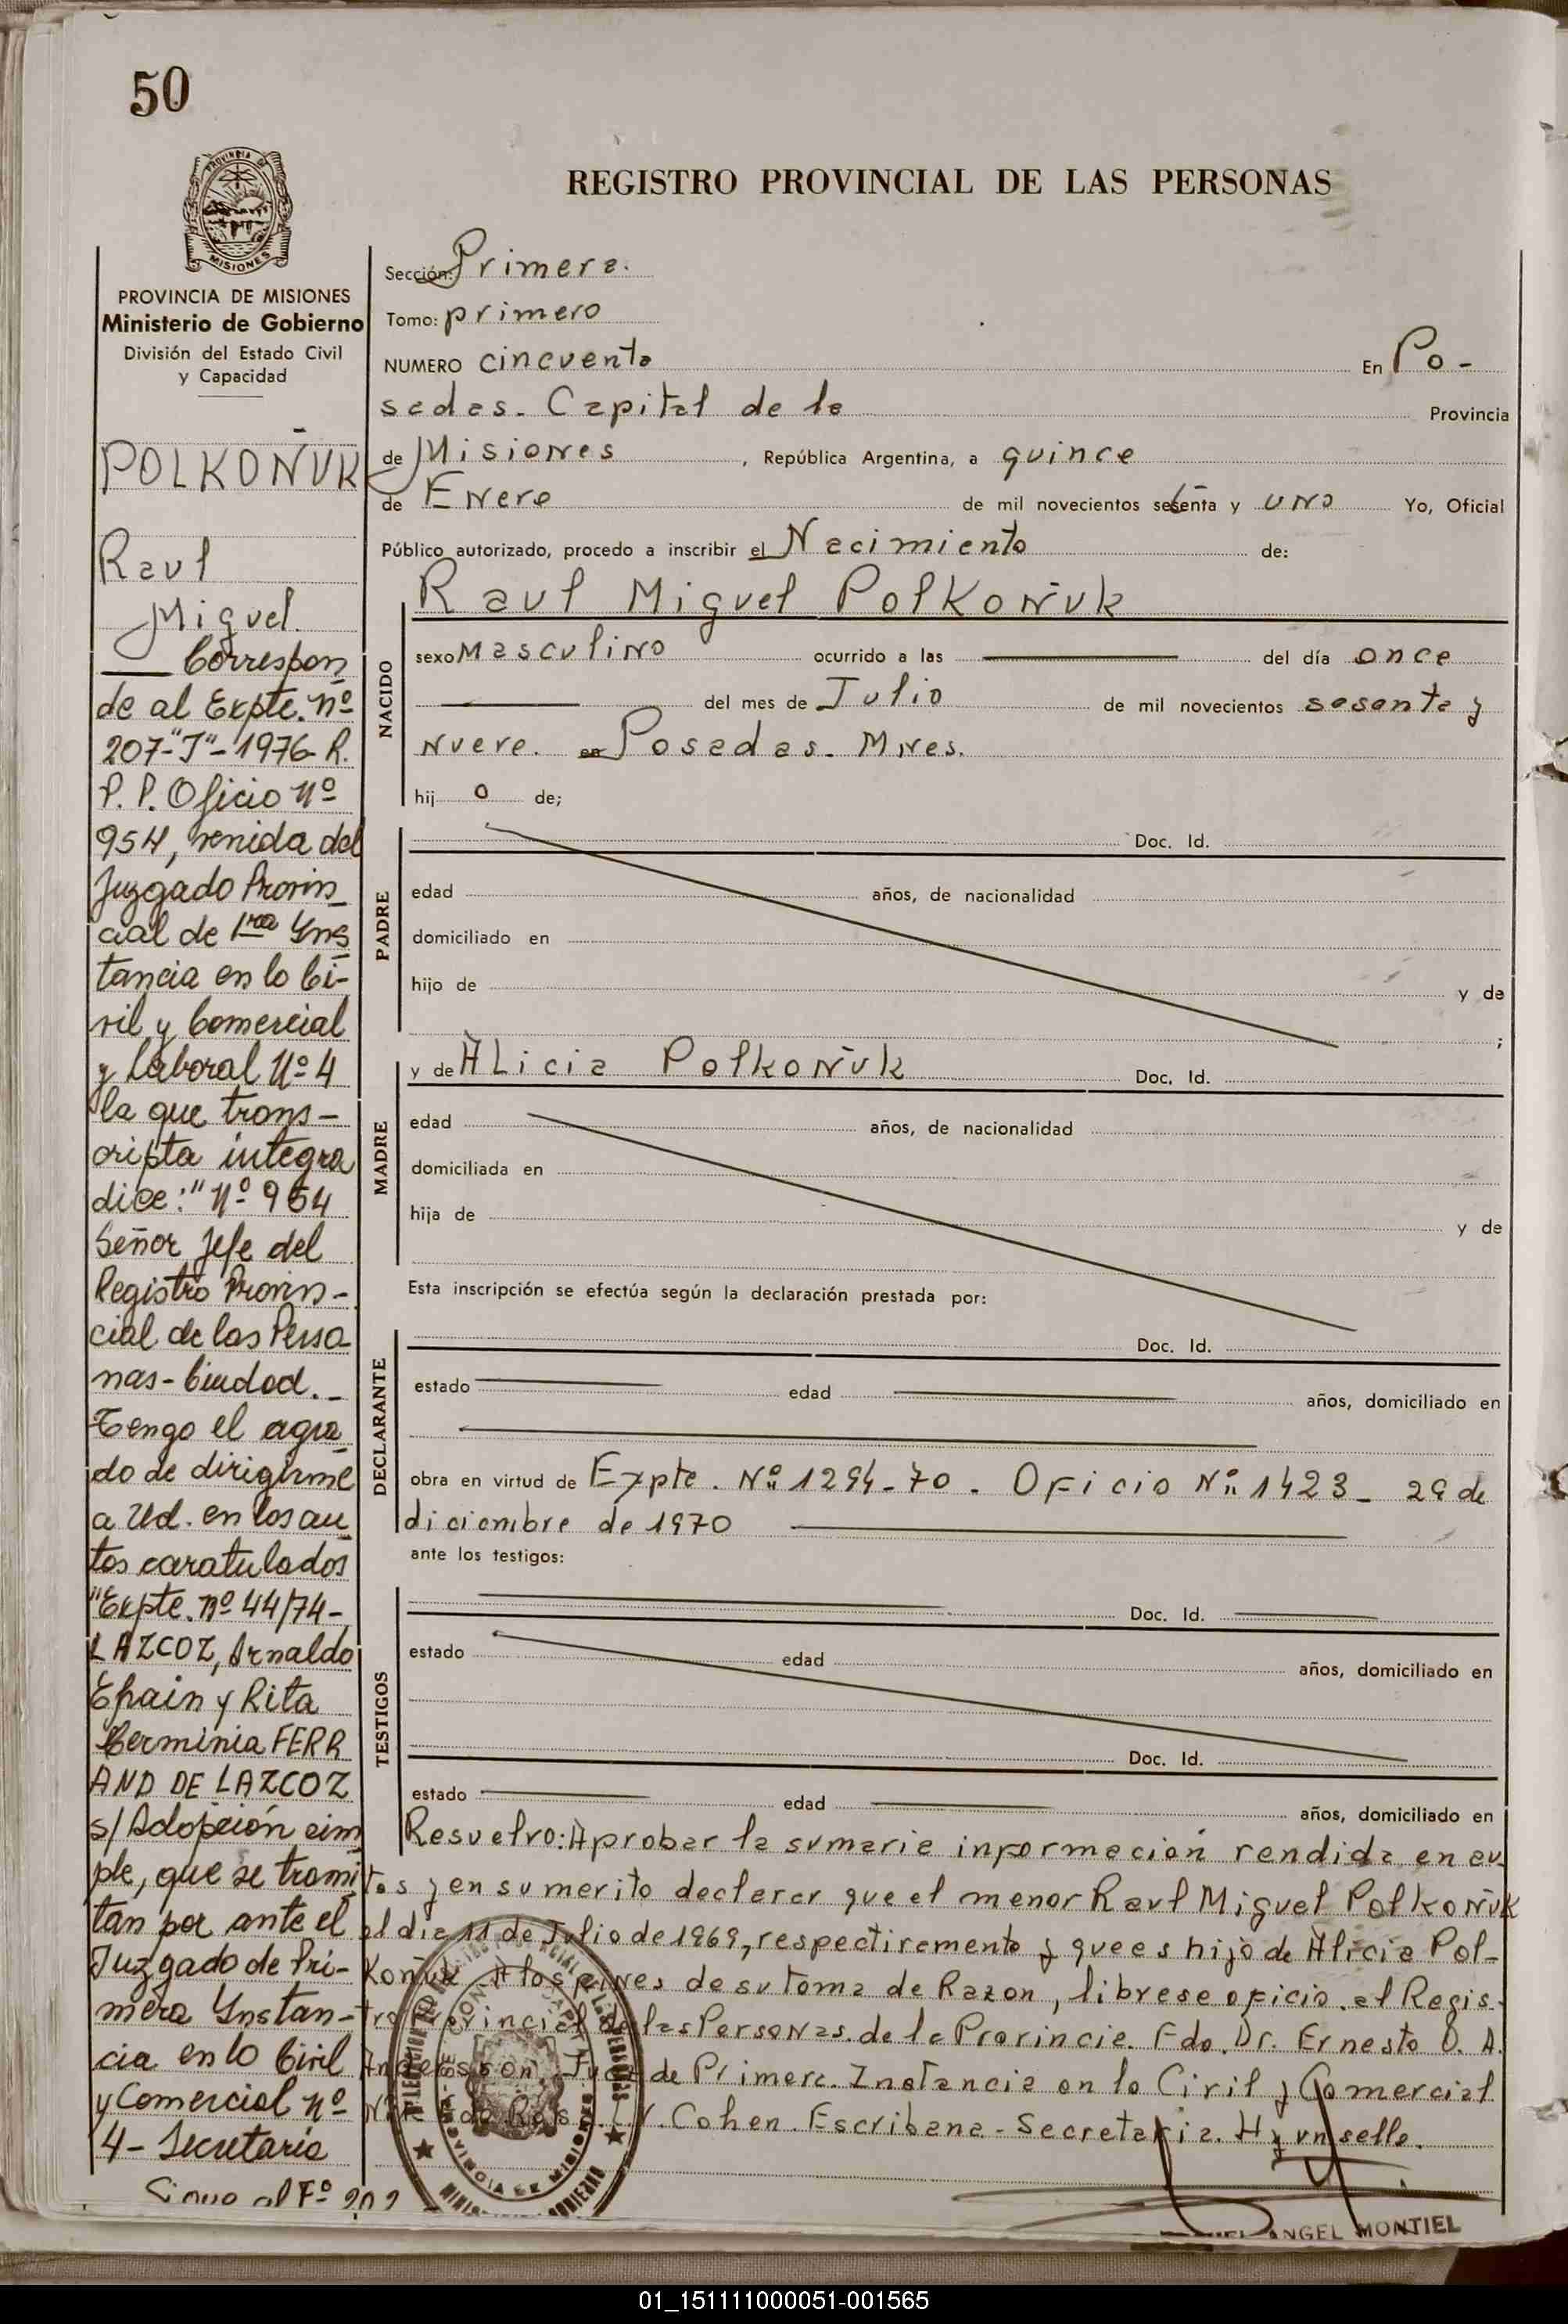 50
PROVINCIA DE
MISIONES
REGISTRO PROVINCIAL DE LAS PERSONAS
PROVINCIA DE MISIONES
Ministerio de Gobierno
División del Estado Civil
y Capacidad
POLKOÑUK
Raul
Miguel.
Correspon
de al Expte. nº
207-"J"-1976-R.
P. P. Oficio Nº
954, venida del
Juzgado Provin
cial de 1ra Yns
tancia en lo Ci-
vil y Comercial
y Laboral Nº 4
la que trans-
cripta integra
dice: "Nº 954
Señor Jefe del
Registro Provin-
cial de las Perso
nas-Ciudad.-
Tengo el agra
do de dirigirme
a Ud. en los au
tos caratulados
"Expte. Nº 44/74-
LAZCOZ, Arnaldo
Efrain y Rita
Herminia FERR
AND DE LAZCOZ
s/Adopción sim
ple, que se trami
tan por ante el
Juzgado de Pri-
mera Ynstan-
cia en lo Civil
y Comercial nº
4- Secretaría
Sigue al Fº 202
Sección: Primera.
Tomo: primero
NUMERO cincuenta En Po-
sadas. Capital de la Provincia
de Misiones, República Argentina, a quince
de Enero de mil novecientos setenta y uno Yo, Oficial
Público autorizado, procedo a inscribir el Nacimiento de:
NACIDO
Raul Miguel Polkoñuk
sexo Masculino ocurrido a las del día once
del mes de Julio de mil novecientos sesenta y
nueve. en Posadas. Mnes.
hij o de;
PADRE
Doc. Id.
edad años, de nacionalidad
domiciliado en
hijo de y de
;
MADRE
y de Alicia Polkoñuk Doc. Id.
edad años, de nacionalidad
domiciliada en
hija de y de
Esta inscripción se efectúa según la declaración prestada por:
DECLARANTE
Doc. Id.
estado edad años, domiciliado en
obra en virtud de Expte. Nº 1294-70. Oficio Nº 1423- 29 de
diciembre de 1970
ante los testigos:
TESTIGOS
Doc. Id.
estado edad años, domiciliado en
Doc. Id.
estado edad años, domiciliado en
Resuelvo: Aprobar la sumaria informacion rendida en au
tos y en su merito declarar que el menor Raul Miguel Polkoñuk
el dia 11 de Julio de 1969, respectivamente y que es hijo de Alicia Pol-
koñuk. A los fines de su toma de Razon, librese oficio al Regis-
tro Provincial de las Personas de la Provincia. Fdo. Dr. Ernesto O. A.
Andersson, Juez de Primera Instancia en lo Civil y Comercial
Cohen. Escribana-Secretaria. Hy un sello.
ANGEL MONTIEL
01_151111000051-001565